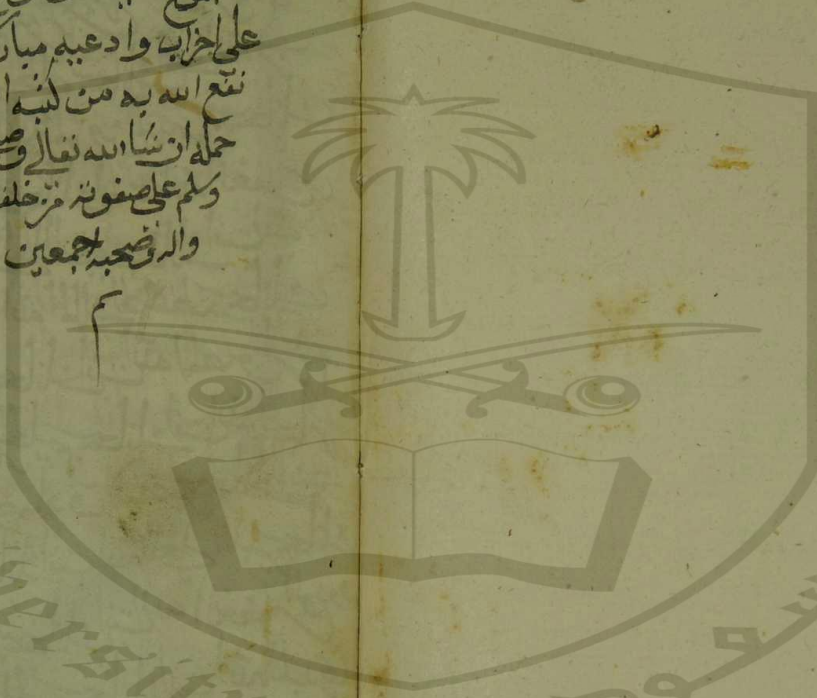 على احزاب وادعيه مبار
نفع الله به من كتبه ا
حمله ان شا الله تعالى وص
وسلم على صفوته من خلق
واله وصحبه اجمعين
م
ersit
سعو